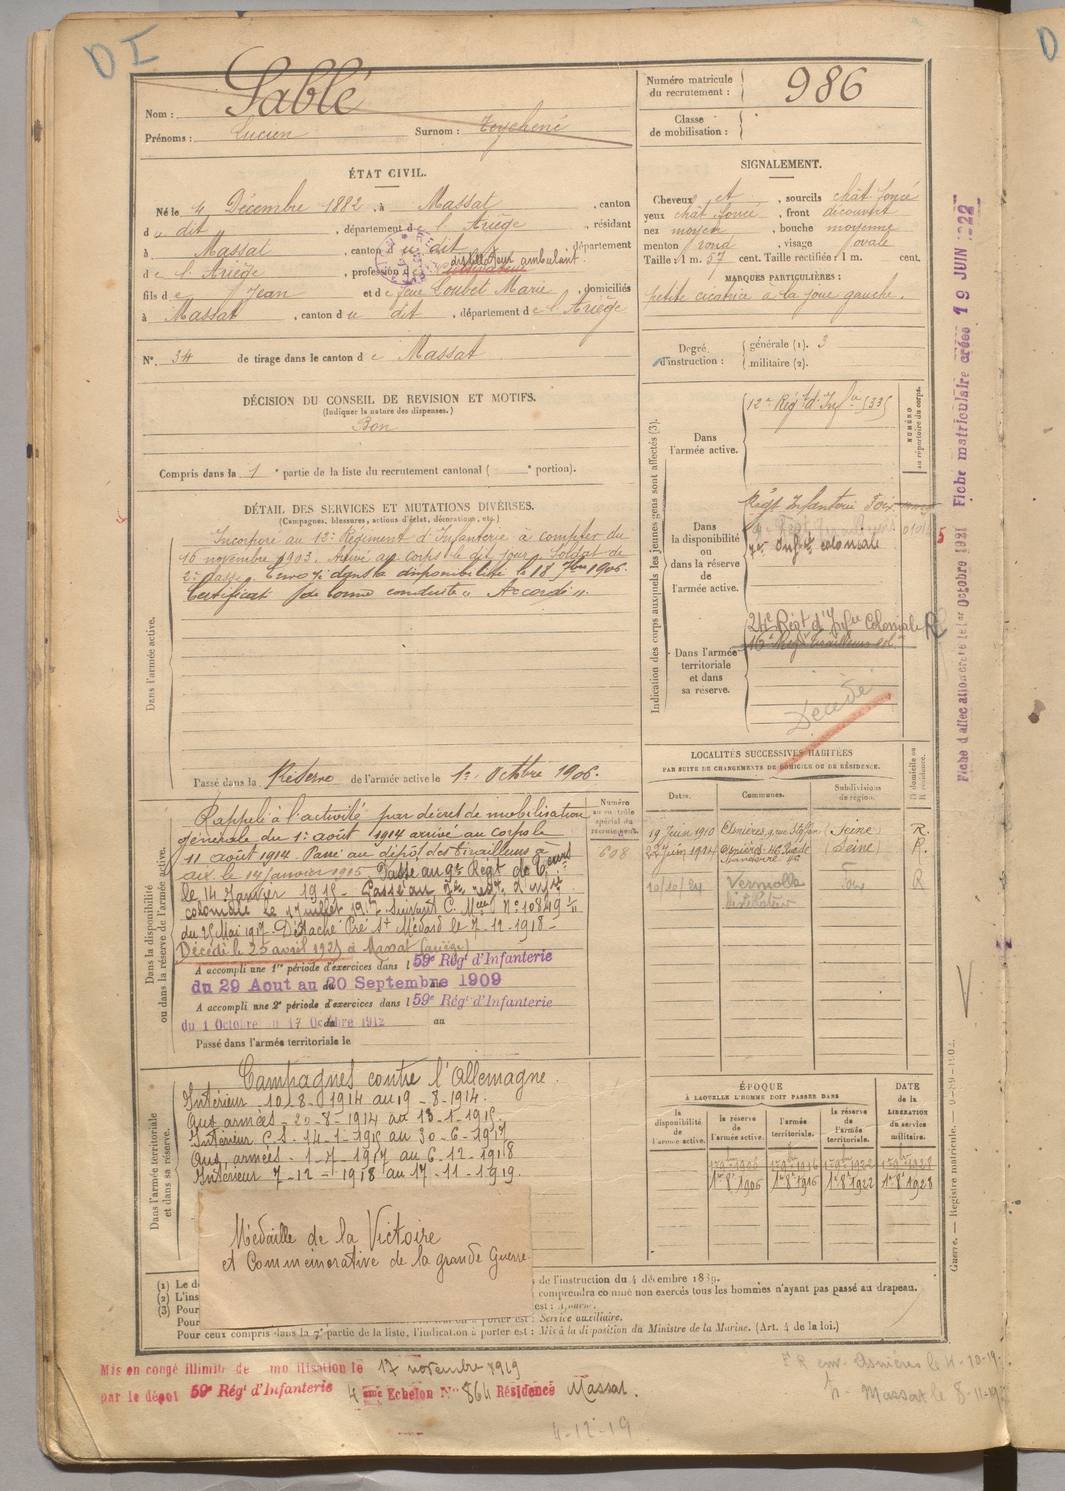 D I
Nom : Sablé
Prénoms : Lucien Surnom :
Numéro matricule du recrutement : 986
Classe de mobilisation :
ÉTAT CIVIL.
Né le 4 Décembre 1882, à Massat, canton
du dit, département de l'Ariège, résidant
à Massat, canton du dit, département
de l'Ariège, profession de distillateur ambulant.
fils de Jean et de feue Loubet Marie, domiciliés
à Massat, canton du dit, département de l'Ariège
N° 34 de tirage dans le canton de Massat
DÉCISION DU CONSEIL DE REVISION ET MOTIFS.
(Indiquer la nature des dispenses.)
Bon
Compris dans la 1e partie de la liste du recrutement cantonal ( e portion).
DÉTAIL DES SERVICES ET MUTATIONS DIVERSES.
(Campagnes, blessures, actions d'éclat, décorations, etc.)
Dans l'armée active.
Incorporé au 12e Régiment d'Infanterie à compter du
16 novembre 1903. Arrivé au corps le dit jour. Soldat de
2e classe. Envoyé dans la disponibilité le 18 7bre 1906.
Certificat de bonne conduite "Accordé".
Passé dans la Réserve de l'armée active le 1er Octobre 1906.
Dans la disponibilité ou dans la réserve de l'armée active.
Rappelé à l'activité par décret de mobilisation
générale du 1er août 1914 arrivé au corps le
11 août 1914. Passé au dépôt des tirailleurs à
Aix le 14 janvier 1915. Passé au 9e Régt de
le 14 Janvier 1915. Passé au 7e
coloniale le 1 juillet 1917 Suivant C. Mlle N° 10849
du 25 Mai 1917 Détaché Pré St Médard le 7-12-1918-
Décédé le 25 avril 1925 à Massat (ariège)
A accompli une 1re période d'exercices dans l 59e Régt d'Infanterie
du 29 Aout au 20 Septembre 1909
A accompli une 2e période d'exercices dans l 59e Régt d'Infanterie
du 1 Octobre au 17 Octobre 1912 au
Passé dans l'armée territoriale le
Numéro au contrôle spécial du recrutement.
608
Dans l'armée territoriale et dans sa réserve.
Campagnes contre l'Allemagne.
Intérieur 10-8-1914 au 19-8-1914.
Aux armées - 20-8-1914 au 13-1-1915.
Intérieur C.S. - 14-1-1915 au 30-6-1917
Aux armées - 1-7-1917 au 6-12-1918
Intérieur 7-12-1918 au 17-11-1919.
Médaille de la Victoire
et Commémorative de la grande Guerre
SIGNALEMENT.
Cheveux et, sourcils chât foncé
yeux chât foncé, front découvert
nez moyen, bouche moyenne
menton rond, visage ovale
Taille : 1 m. 57 cent. Taille rectifiée : 1 m. cent.
MARQUES PARTICULIÈRES :
petite cicatrice à la joue gauche.
Degré d'instruction : générale (1). 3
militaire (2).
Indication des corps auxquels les jeunes gens sont affectés (3).
NUMÉRO au répertoire du corps.
Dans l'armée active.
12e Régt d'Infie (33)
Dans la disponibilité ou dans la réserve de l'armée active.
Régt Infanterie Foix
7e Infie coloniale
Dans l'armée territoriale et dans sa réserve.
24e Régt d'Infie Coloniale R
16e Régt tirailleurs col
Décédé
LOCALITÉS SUCCESSIVES HABITÉES
PAR SUITE DE CHANGEMENTS DE DOMICILE OU DE RÉSIDENCE.
Dates. Communes. Subdivisions de région. D domicile ou R résidence.
19 Juin 1910 Asnières (Seine) R.
22 juin 1914 Asnières (Seine) R.
10/10/24 Foix R
ÉPOQUE
À LAQUELLE L'HOMME DOIT PASSER DANS
DATE de la LIBÉRATION du service militaire.
la disponibilité de l'armée active. la réserve de l'armée active. l'armée territoriale. la réserve de l'armée territoriale.
1er 8e 1906 1er 8e 1916 1er 8e 1922 1er 8e 1928
Fiche d'affectation créée le 1er Octobre 1921 Fiche matriculaire créée 19 JUIN 1922
Guerre. — Registre matricule. — 9-89-1902.
(1) Le d
(2) L'ins
(3) Pour
Pour
de l'instruction du 4 décembre 1889.
comprendra comme non exercés tous les hommes n'ayant pas passé au drapeau.
est : Ajourné.
porter est : Service auxiliaire.
Pour ceux compris dans la 7e partie de la liste, l'indication à porter est : Mis à la disposition du Ministre de la Marine. (Art. 4 de la loi.)
Mis en congé illimité de mobilisation le 17 novembre 1919
par le dépôt 59e Régt d'Infanterie 4 ème Echelon N° 864 Résidence Massat.
4-12-19
Asnières le 4-10-19
Massat le 8-11-19
D